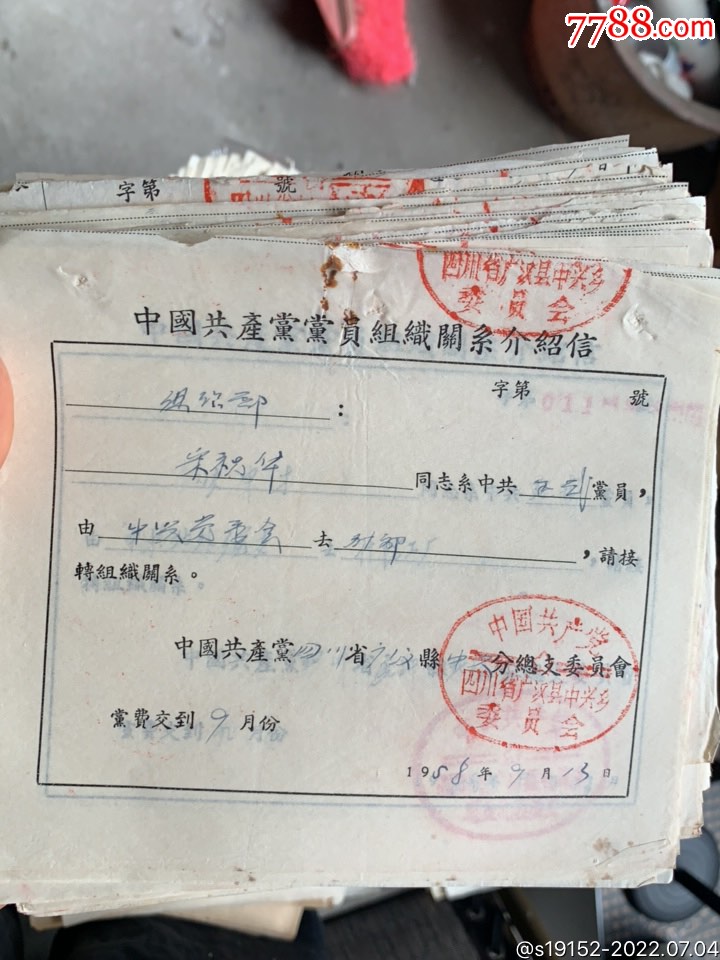 7788.com
字第 號
四川省广汉县中兴乡
委员会
中國共產黨黨員組織關系介紹信
字第 號
组织部：
同志系中共正式黨員，
由中兴党委会去外部，請接
轉組織關系。
中國共產黨四川省广汉縣中兴分總支委員會
中国共产党
四川省广汉县中兴乡
委员会
黨費交到9月份
1958年9月13日
@s19152-2022.07.04